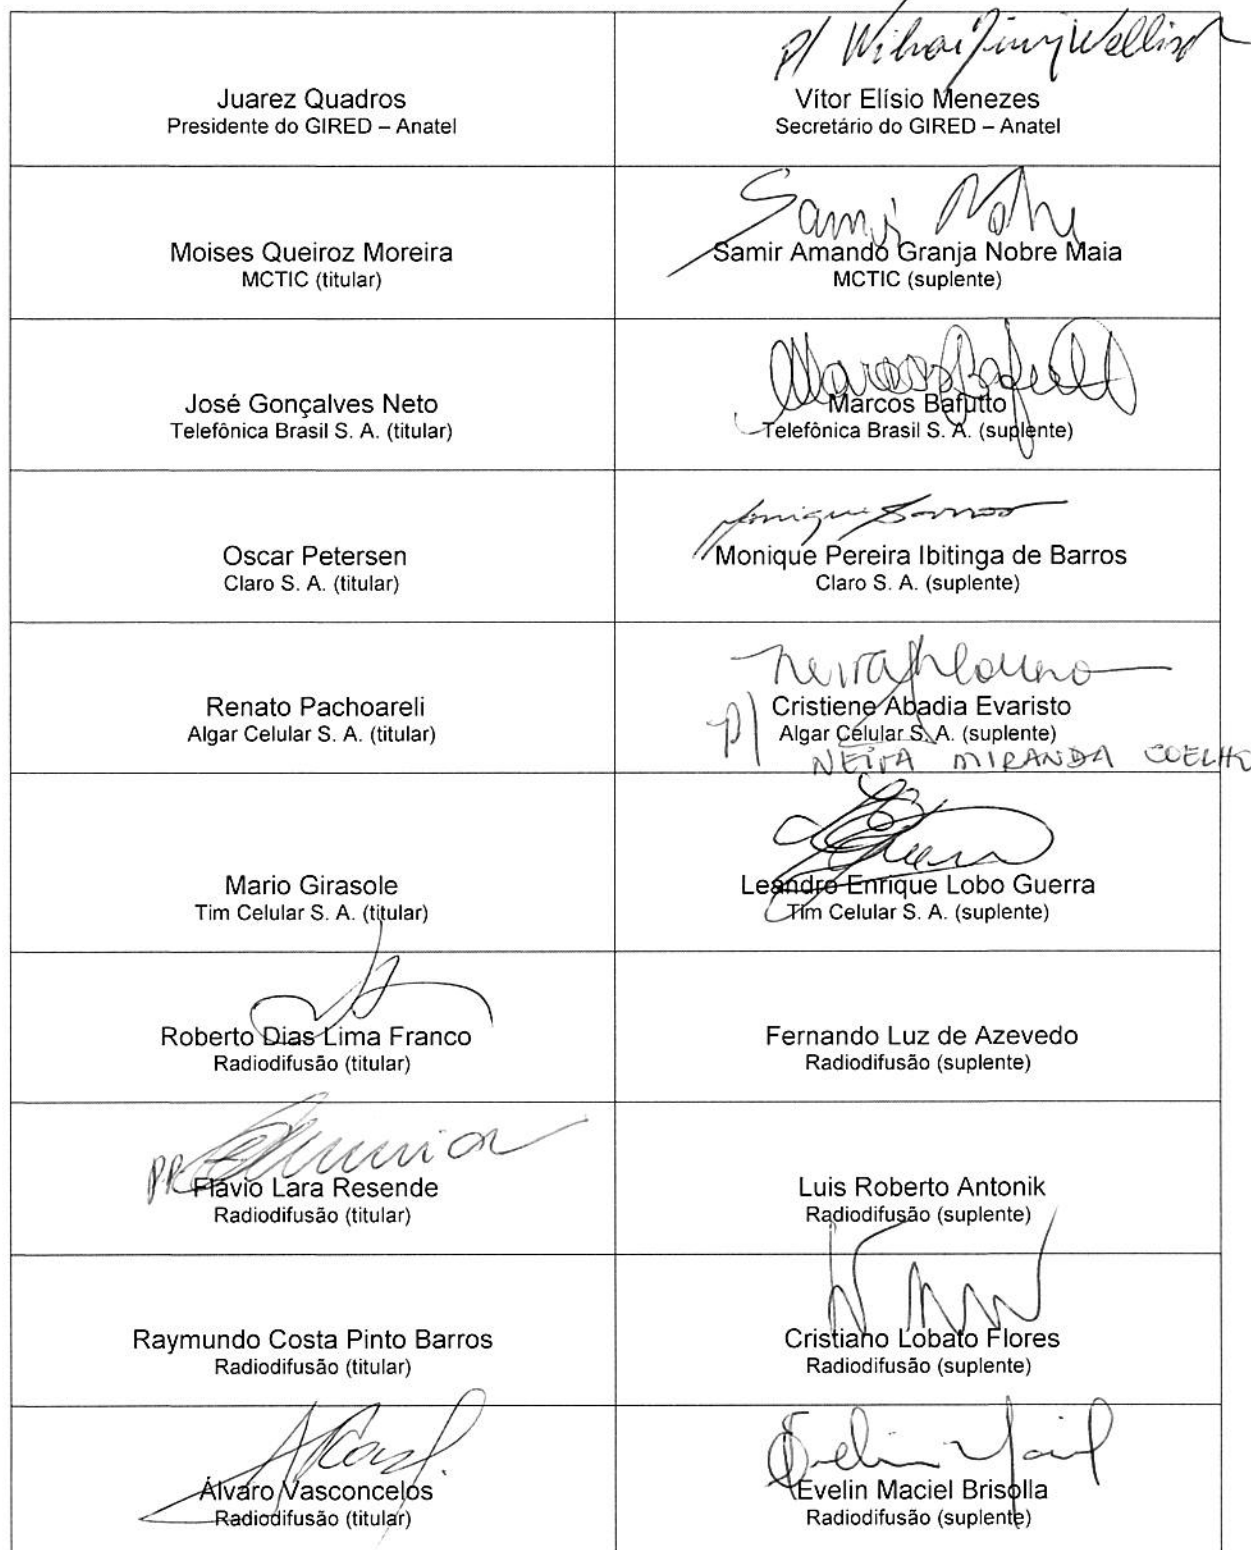 p/ Wellisch
Juarez Quadros
Presidente do GIRED – Anatel
Vítor Elísio Menezes
Secretário do GIRED – Anatel
Samir
Moises Queiroz Moreira
MCTIC (titular)
Samir Amando Granja Nobre Maia
MCTIC (suplente)
Marcos Bafutto
José Gonçalves Neto
Telefônica Brasil S. A. (titular)
Marcos Bafutto
Telefônica Brasil S. A. (suplente)
Monique Barros
Oscar Petersen
Claro S. A. (titular)
Monique Pereira Ibitinga de Barros
Claro S. A. (suplente)
Renato Pachoareli
Algar Celular S. A. (titular)
Cristiene Abadia Evaristo
p/ Algar Celular S. A. (suplente)
NEIVA MIRANDA COELHO
Mario Girasole
Tim Celular S. A. (titular)
Leandro Enrique Lobo Guerra
Tim Celular S. A. (suplente)
Roberto Dias Lima Franco
Radiodifusão (titular)
Fernando Luz de Azevedo
Radiodifusão (suplente)
PP
Flávio Lara Resende
Radiodifusão (titular)
Luis Roberto Antonik
Radiodifusão (suplente)
Raymundo Costa Pinto Barros
Radiodifusão (titular)
Cristiano Lobato Flores
Radiodifusão (suplente)
Álvaro Vasconcelos
Radiodifusão (titular)
Evelin Maciel
Evelin Maciel Brisolla
Radiodifusão (suplente)